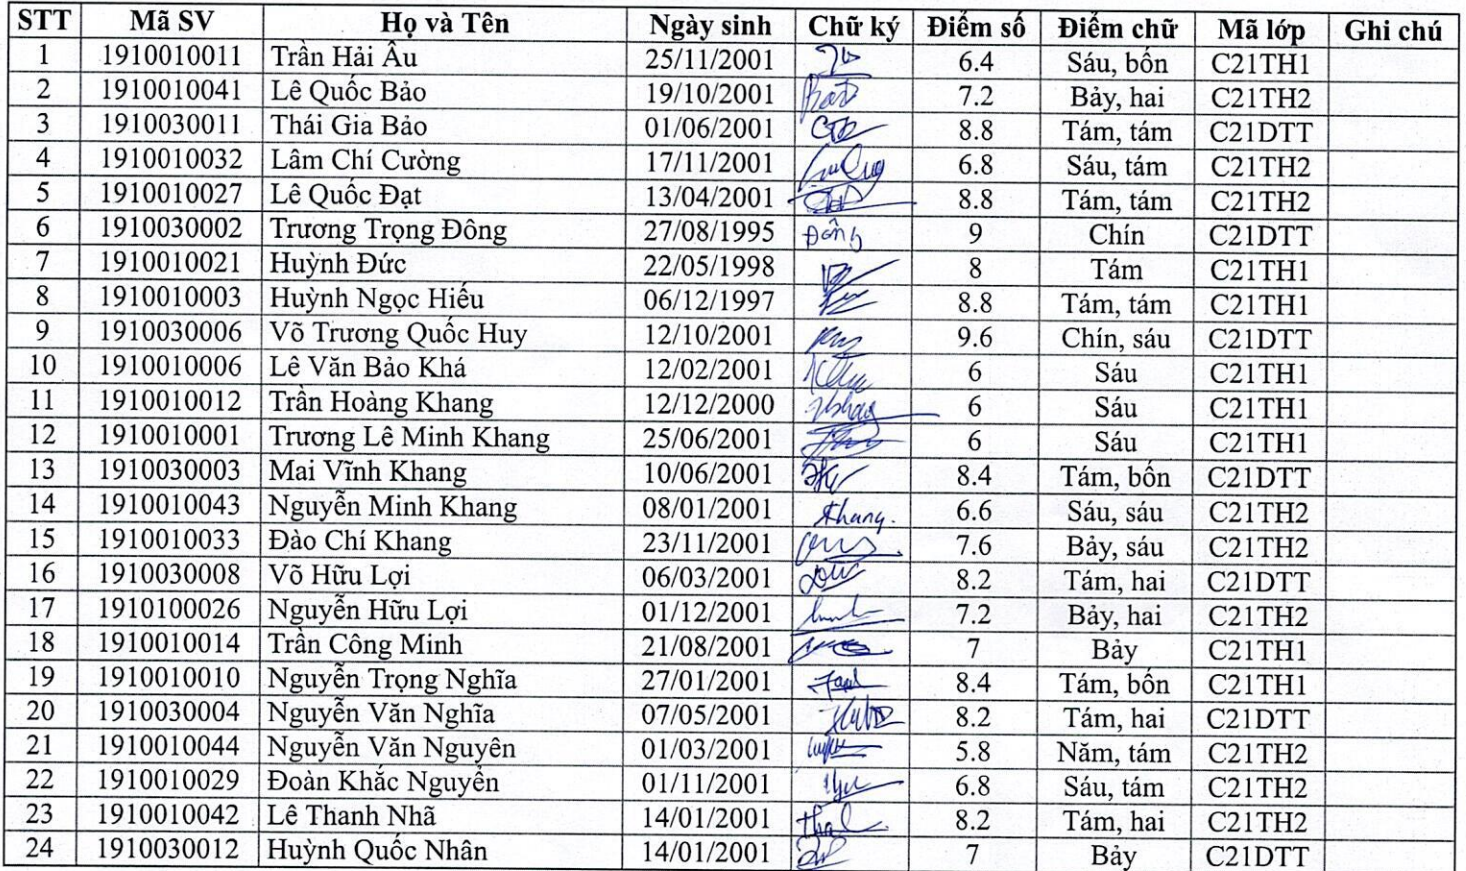 STT Mã SV Họ và Tên Ngày sinh Chữ ký Điểm số Điểm chữ Mã lớp Ghi chú
1 1910010011 Trần Hải Âu 25/11/2001 6.4 Sáu, bốn C21TH1
2 1910010041 Lê Quốc Bảo 19/10/2001 7.2 Bảy, hai C21TH2
3 1910030011 Thái Gia Bảo 01/06/2001 8.8 Tám, tám C21DTT
4 1910010032 Lâm Chí Cường 17/11/2001 6.8 Sáu, tám C21TH2
5 1910010027 Lê Quốc Đạt 13/04/2001 8.8 Tám, tám C21TH2
6 1910030002 Trương Trọng Đông 27/08/1995 Đông 9 Chín C21DTT
7 1910010021 Huỳnh Đức 22/05/1998 8 Tám C21TH1
8 1910010003 Huỳnh Ngọc Hiếu 06/12/1997 8.8 Tám, tám C21TH1
9 1910030006 Võ Trương Quốc Huy 12/10/2001 9.6 Chín, sáu C21DTT
10 1910010006 Lê Văn Bảo Khá 12/02/2001 6 Sáu C21TH1
11 1910010012 Trần Hoàng Khang 12/12/2000 6 Sáu C21TH1
12 1910010001 Trương Lê Minh Khang 25/06/2001 6 Sáu C21TH1
13 1910030003 Mai Vĩnh Khang 10/06/2001 8.4 Tám, bốn C21DTT
14 1910010043 Nguyễn Minh Khang 08/01/2001 Khang. 6.6 Sáu, sáu C21TH2
15 1910010033 Đào Chí Khang 23/11/2001 7.6 Bảy, sáu C21TH2
16 1910030008 Võ Hữu Lợi 06/03/2001 8.2 Tám, hai C21DTT
17 1910100026 Nguyễn Hữu Lợi 01/12/2001 7.2 Bảy, hai C21TH2
18 1910010014 Trần Công Minh 21/08/2001 7 Bảy C21TH1
19 1910010010 Nguyễn Trọng Nghĩa 27/01/2001 8.4 Tám, bốn C21TH1
20 1910030004 Nguyễn Văn Nghĩa 07/05/2001 8.2 Tám, hai C21DTT
21 1910010044 Nguyễn Văn Nguyên 01/03/2001 5.8 Năm, tám C21TH2
22 1910010029 Đoàn Khắc Nguyễn 01/11/2001 6.8 Sáu, tám C21TH2
23 1910010042 Lê Thanh Nhã 14/01/2001 8.2 Tám, hai C21TH2
24 1910030012 Huỳnh Quốc Nhân 14/01/2001 7 Bảy C21DTT